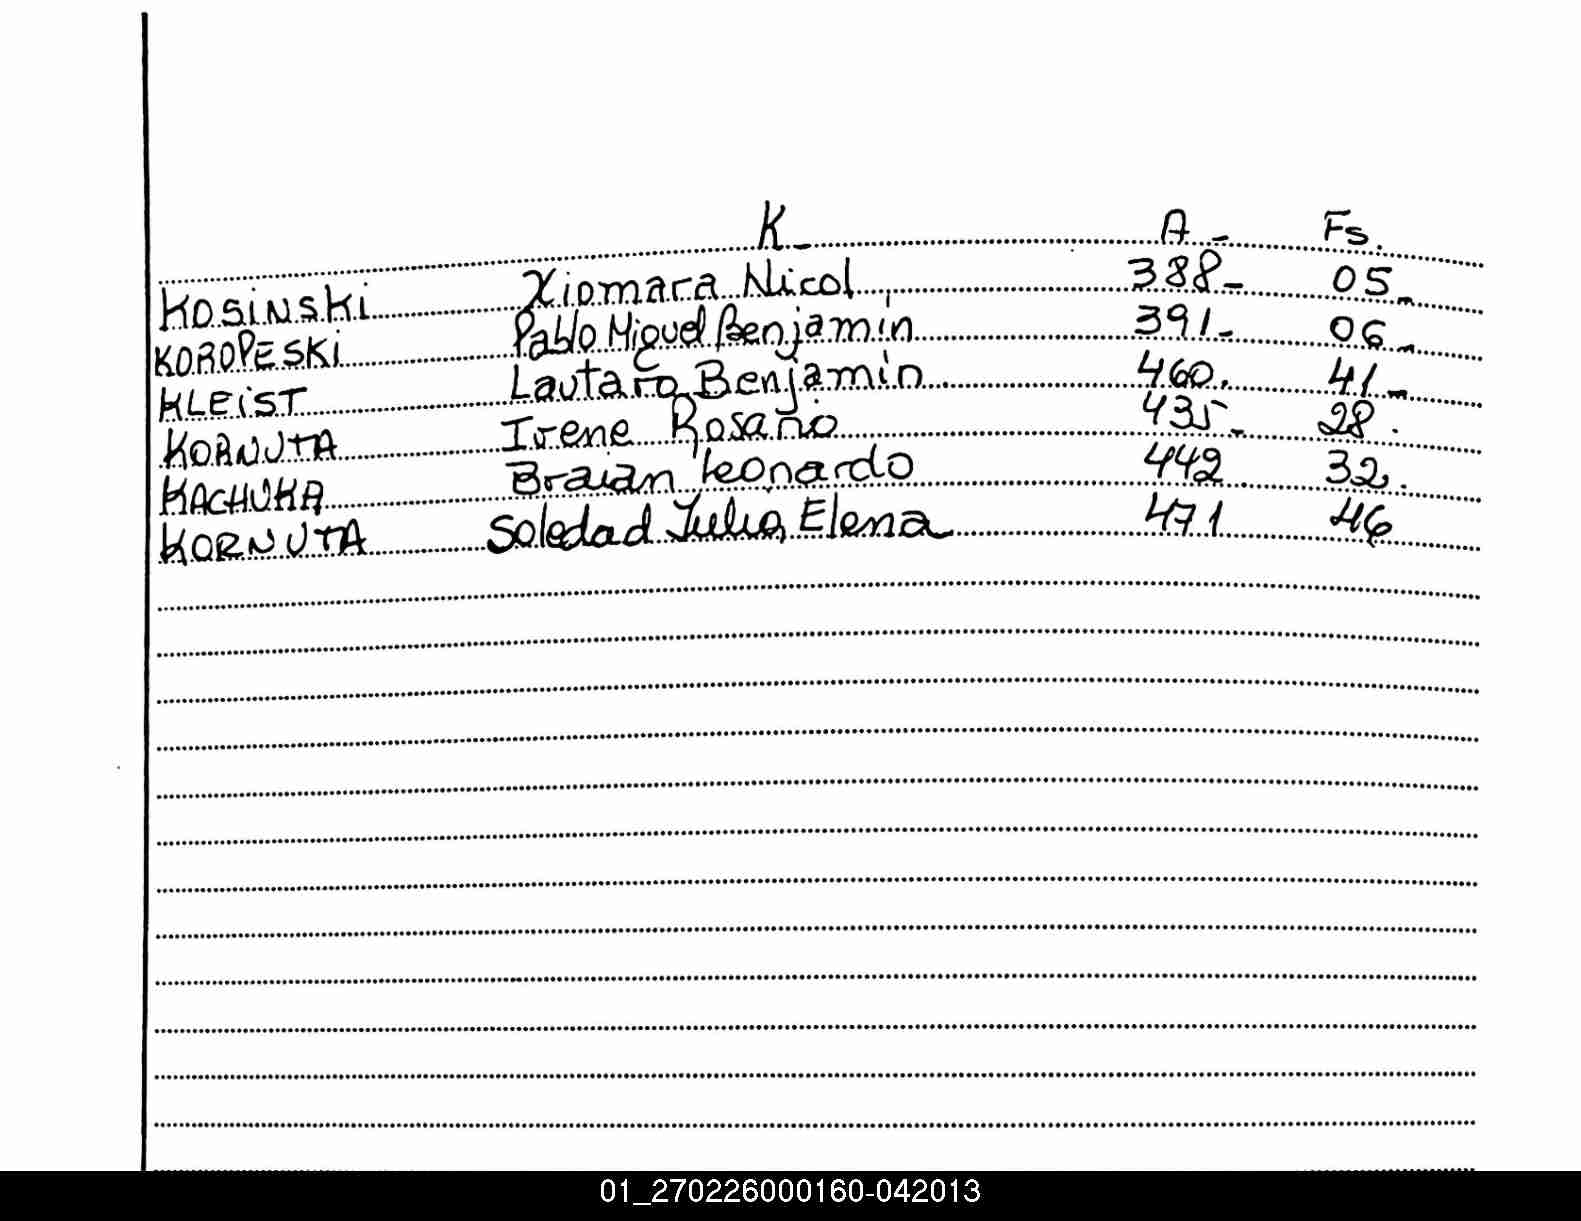 K- A- Fs.
KOSiNSKi Xiomara Nicol 388- 05-
KOROPESKi Pablo Miguel Benjamin 391- 06-
KLEiST Lautaro Benjamin 460. 41-
KORNUTA Irene Rosario 435- 28.
KACHUKA Braian Leonardo 442. 32.
KORNUTA Soledad Julia Elena 471 46
01_270226000160-042013